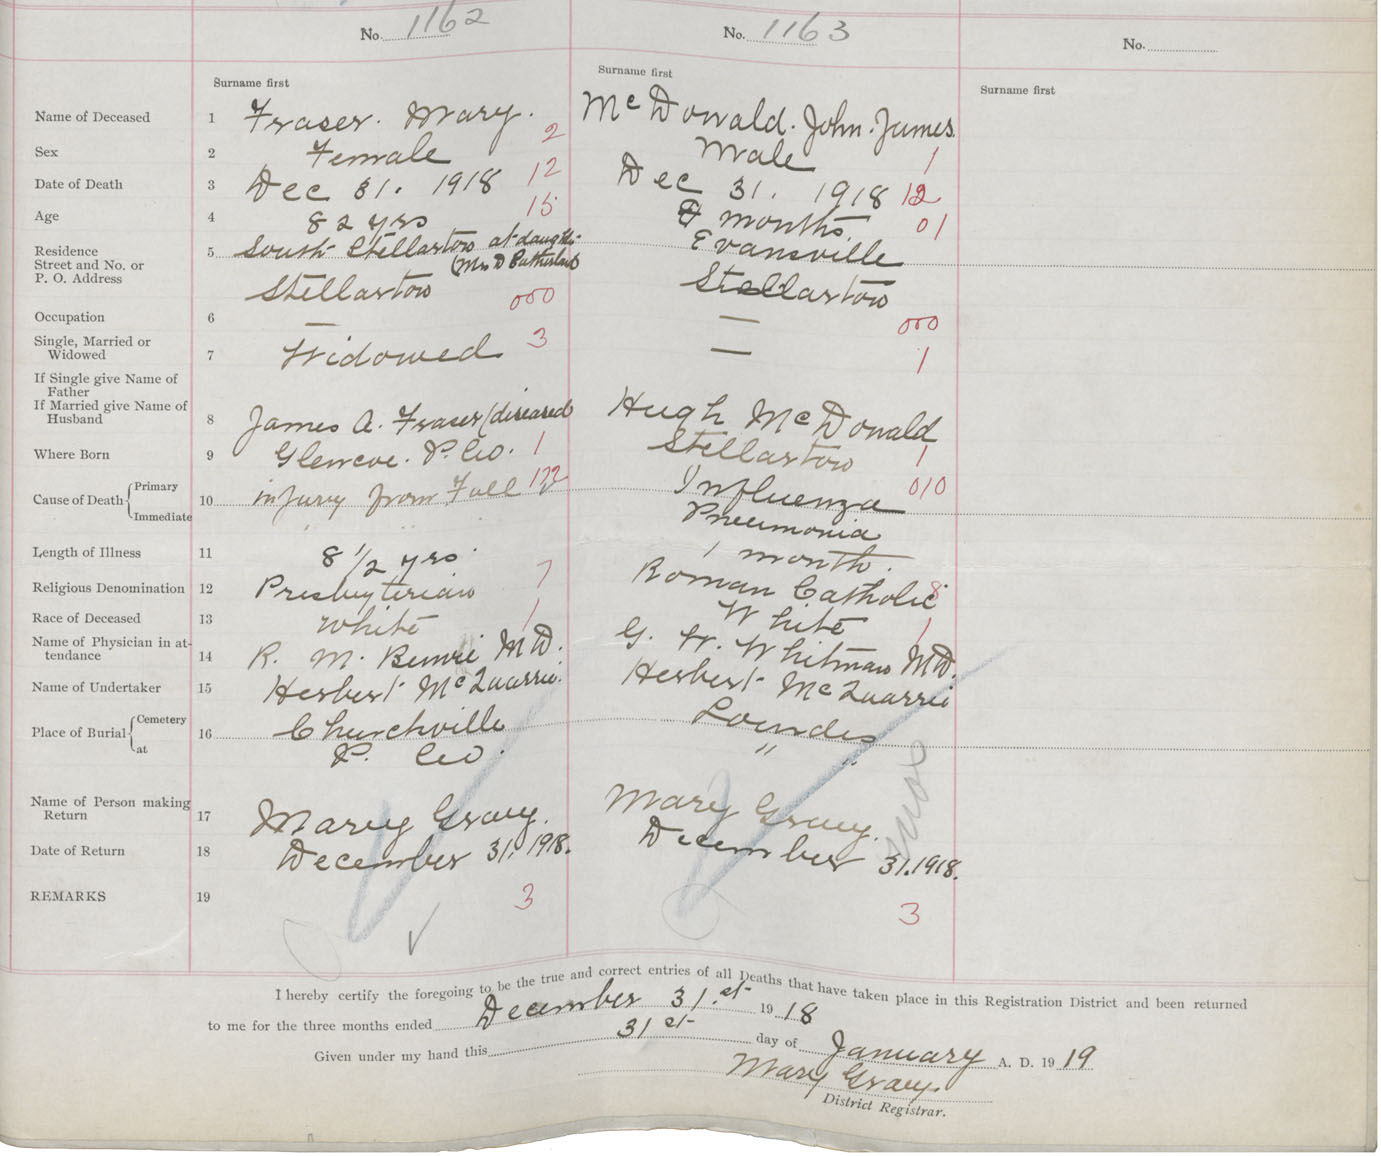 No. 1162
No. 1163
No.
Surname first
Surname first
Surname first
Name of Deceased 1 Fraser. Mary. McDonald. John. James
Sex 2 Female 2 Male 1
Date of Death 3 Dec 31. 1918 12 Dec 31. 1918 12
Age 4 82 yrs 15 months 01
Residence
Street and No. or
P. O. Address
5 South Stellarton at daught
(Mrs D
Stellarton
Evansville
Stellarton
Occupation 6 — 000 — 000
Single, Married or
Widowed
7 Widowed 3 — 1
If Single give Name of
Father
If Married give Name of
Husband
8 James A. Fraser (diseased Hugh McDonald
Where Born 9 Glencoe. P. Co. 1 Stellarton 1
Cause of Death { Primary
Immediate
10 injury from Fall
Influenza 010
Pneumonia
Length of Illness 11 8 1/2 yrs 1 month.
Religious Denomination 12 Presbyterian 7 Roman Catholic 8
Race of Deceased 13 White 1 White 1
Name of Physician in at-
tendance
14 R. M. MD. G. W. Whitman MD.
Name of Undertaker 15 Herbert McQuarrie. Herbert McQuarrie
Place of Burial { Cemetery
at
16 Churchville
P. Co.
Lourdes
" "
Name of Person making
Return
17 Mary Gray. Mary Gray.
Date of Return 18 December 31. 1918. December 31. 1918.
REMARKS 19 3 3
I hereby certify the foregoing to be the true and correct entries of all Deaths that have taken place in this Registration District and been returned
to me for the three months ended December 31.st 1918
Given under my hand this 31st day of January A. D. 1919
Mary Gray.
District Registrar.